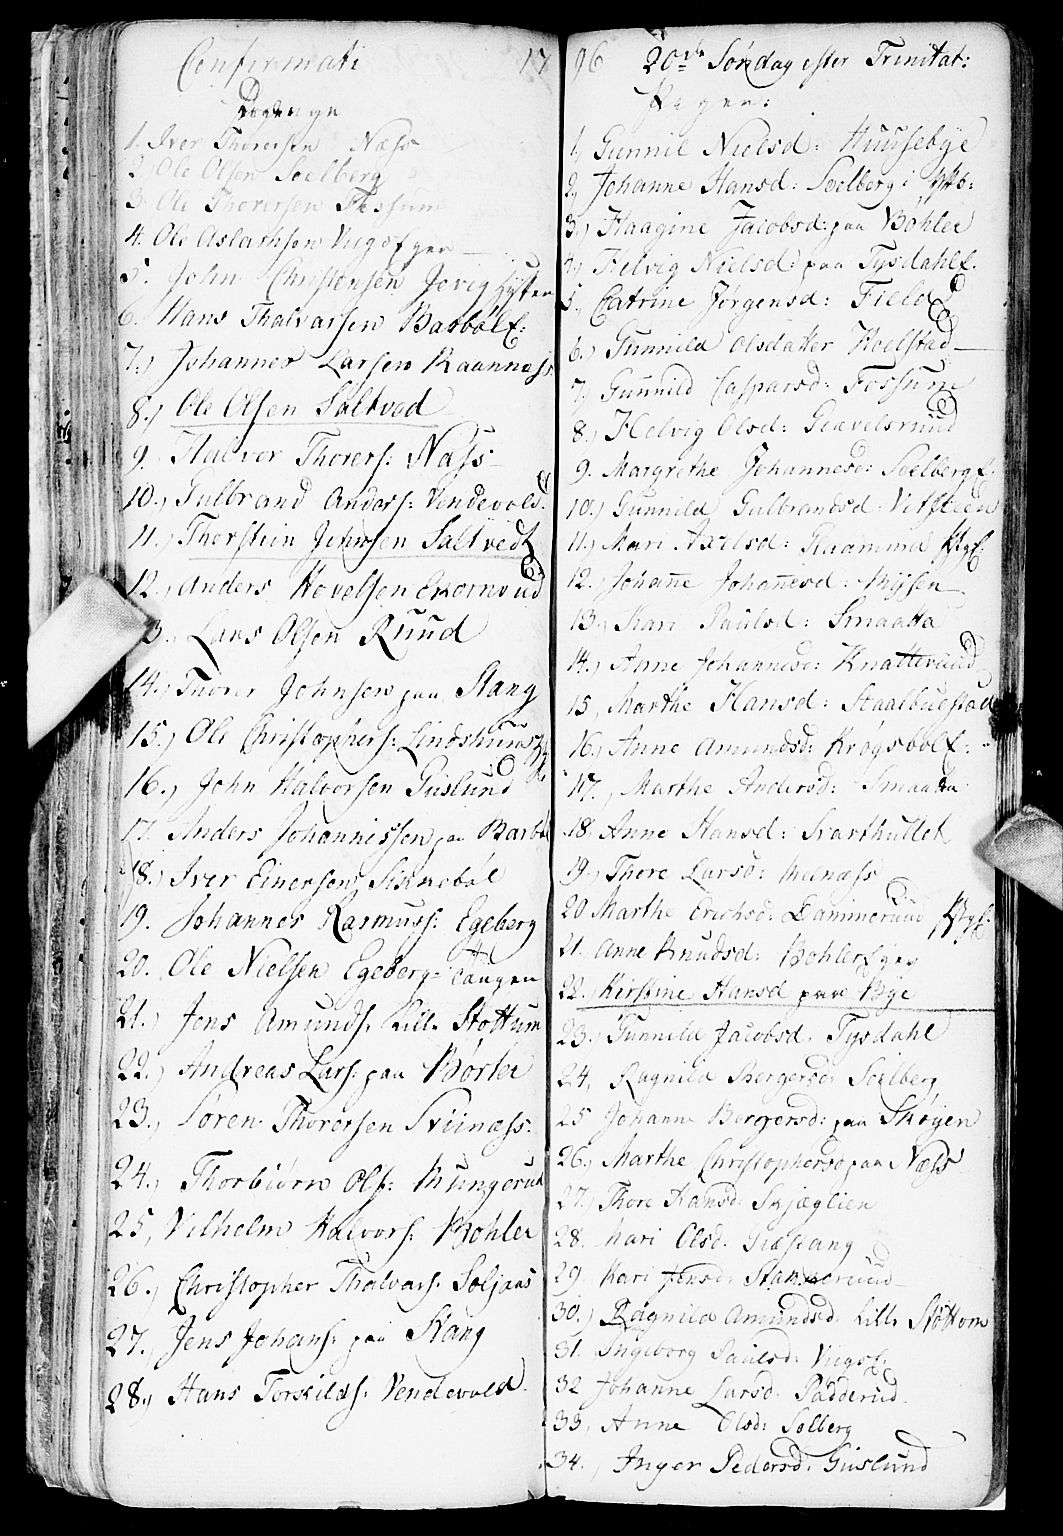 Confirmati 17
Drenge
1. Iver Thorersen Næss
2. Ole Olsen Soelberg
3. Ole Thorersen Fossum
4. Ole Aslachsen
5. John Christensen
6. Hans Thalvarsen Barbølf:
7.) Johannes Larsen Raannass
8.) Ole Olsen Saltved
9. Halvor Thorers: Næss
10.) Gulbrand Anders: Vendevold
11.) Thorstein Johnsen Saltvedt
12.) Anders Hovelsen Ekornrud
13.) Lars Olsen Ruud
14.) Thorer Johnsen paa Stang
15.) Ole Christophers:
16.) John Halvorsen Guslund
17. Anders Johannissen paa Barbøl
18.) Iver Einersen Sikkebøl
19. Johannes Rasmuss: Egeberg
20. Ole Nielsen Egeberg=tangen
21.) Jens Amunds. Lille Støttum
22.) Andreas Lars: paa Børter
23.) Søren Thorersen Sviinæss:
24.) Thorbiørn Ols: Mungerud
25, Vilhelm Halvors: Bøhler
26.) Christopher Thalvars: Soljaas
27. Jens Johans: paa Stang
28.) Hans Torkilds: Vendevold.
96 20de Søndag efter Trinitat:
Piger:
1, Gunnil Nielsd: Huusebye
2, Johanne Hansd: Soelberg:
3.) Haagine Jacobsd: paa Bøhler
4, Helvig Nielsd: paa Tysdahlf.
5. Catrine Jørgensd: Field
6.) Gunnild Olsdatter Hoelstad
7, Gunnild Caspersd: Fossum
8.) Helvig Olsd: Gravelsruud
9. Margrethe Johannesd: Soelbergf.
10.) Gunnild Gulbrandsd:
11.) Mari Axelsd:
12. Johañe Johañesd: Mysen
13. Kari Paulsd: Smaatta
14.) Anne Johannesd: Knatterud
15, Marthe Hansd:
16.) Anne Amundsd: Krogsbølf:
17. Marthe Andersd: Smaatta
18. Anne Hansd: Svarthullet
19.) Thore Larsd:
20 Marthe Erichsd:
21. Anne Knudsd: Bøhler
22. Kirstine Hansd paa Bye
23. Gunnild Jacobsd. Tysdahl
24, Ragnild Bergersd: Soelberg
25 Johanne Bergersd: paa Skøyen
26.) Marthe Christophersd paa Næss
27.) Thore Hansd: Skjæglien
28. Mari Olsd:
29. Kari Jensd:
30.) Ragnild Amundsd. Lille Støttum
31. Ingeborg Paulsd:
32 Johanne Larsd: Padderud.
33, Anne Olsd: Solberg
34. Inger Pedersd. Guslund